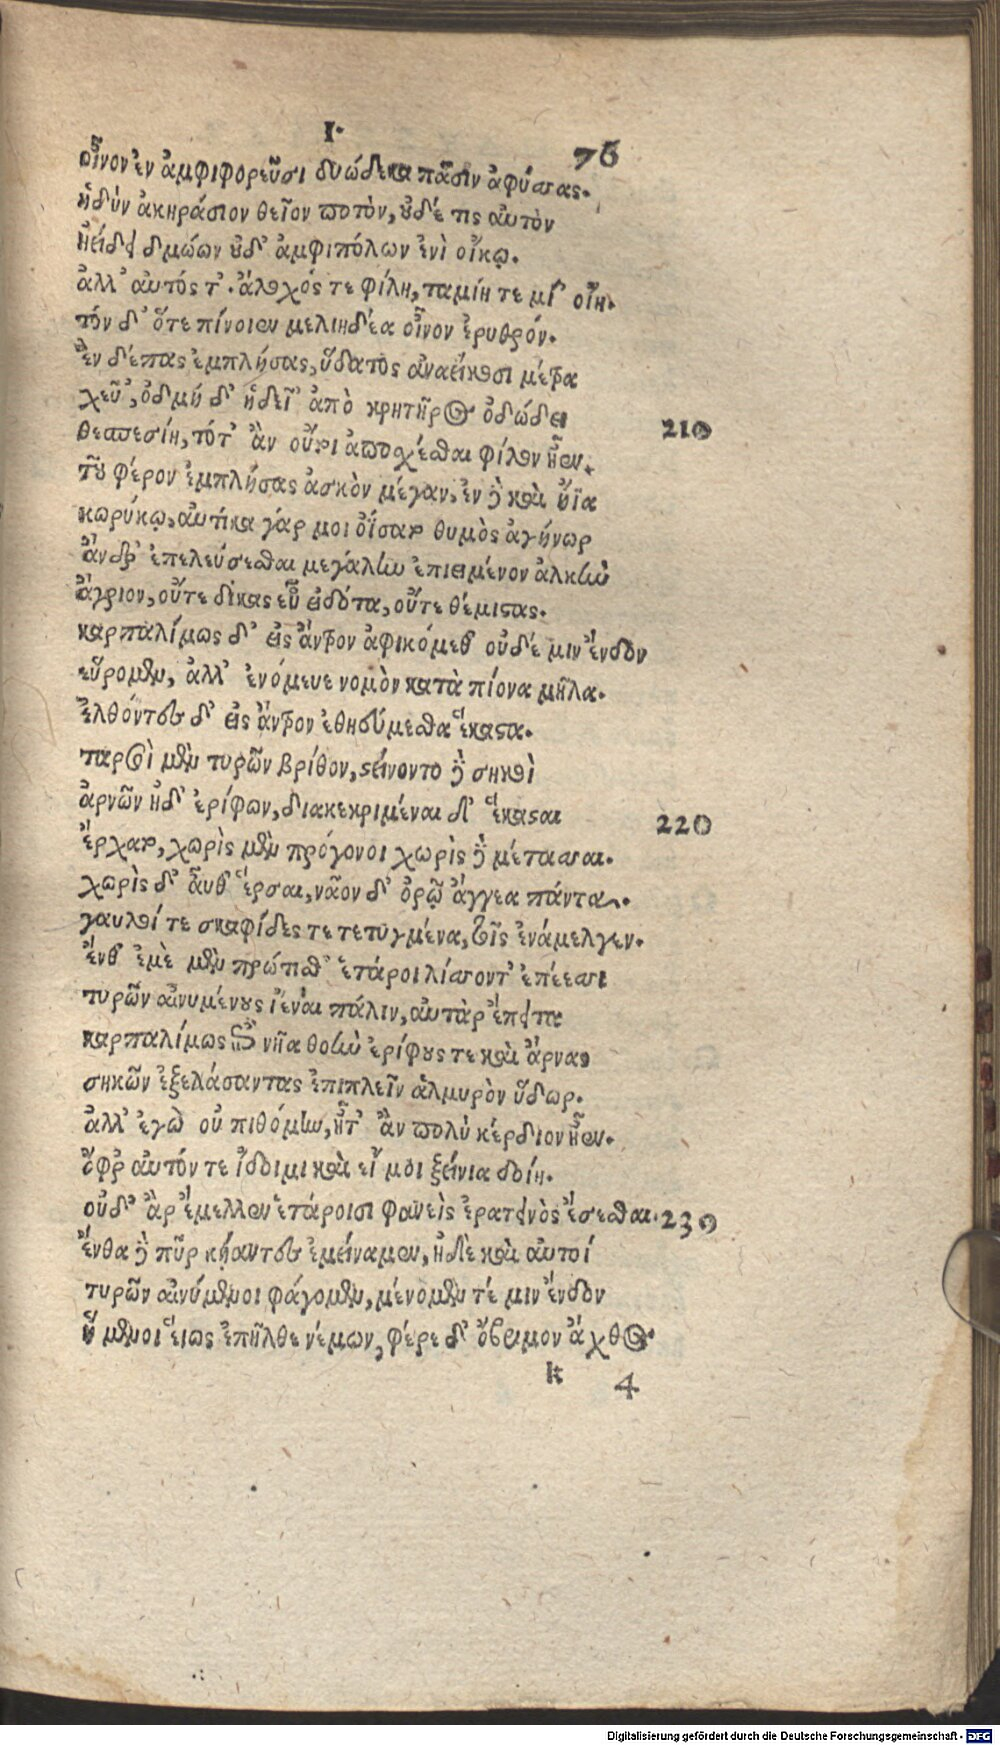 Ι·
76
οἶνον ἐν ἀμφιφορεῦσι δυώδεκα πᾶσιν ἀφύσσας.
ἡδύν ἀκηράσιον θεῖον ποτὸν, οὐδέ τις αὐτὸν
ἠείδει δμώων οὐδ' ἀμφιπόλων ἐνὶ οἴκῳ.
ἀλλ' αὐτός τ'. ἄλοχός τε φίλη, ταμίη τε μί' οἴη.
τὸν δ' ὅτε πίνοιεν μελιηδέα οἶνον ἐρυθρόν.
ἓν δέπας ἐμπλήσας, ὕδατος ἀναείκοσι μέτρα
χεῦ', ὀδμὴ δ' ἡδεῖ' ἀπὸ κρητῆρος ὀδώδει
210
θεσπεσίη, τότ' ἂν οὔτοι ἀποχέσθαι φίλον ἦεν.
τοῦ φέρον ἐμπλήσας ἀσκὸν μέγαν, ἐν δὲ καὶ ᾖα
κωρύκῳ, αὐτίκα γάρ μοι ὀΐσατο θυμὸς ἀγήνωρ
ἄνδρ' ἐπελεύσεσθαι μεγάλην ἐπιειμένον ἀλκὴν
ἄγριον, οὔτε δίκας εὖ εἰδότα, οὔτε θέμιστας.
καρπαλίμως δ' εἰς ἄντρον ἀφικόμεθ' οὐδέ μιν ἔνδον
εὕρομεν, ἀλλ' ἐνόμευε νομὸν κατὰ πίονα μῆλα.
ἐλθόντες δ' εἰς ἄντρον ἐθηεύμεσθα ἕκαστα.
ταρσοὶ μὲν τυρῶν βρίθον, στείνοντο δὲ σηκοὶ
ἀρνῶν ἠδ' ἐρίφων, διακεκριμέναι δ' ἕκασται
220
ἔρχατο, χωρὶς μὲν πρόγονοι χωρὶς δὲ μέτασσαι.
χωρὶς δ' αὖθ' ἕρσαι, ναῖον δ' ὀρῷ ἄγγεα πάντα.
γαυλοί τε σκαφίδες τε τετυγμένα, τοῖς ἐνάμελγεν.
ἔνθ' ἐμὲ μὲν πρώτισθ' ἑτάροι λίσσοντ' ἐπέεσσι
τυρῶν αἰνυμένους ἰέναι πάλιν, αὐτὰρ ἔπειτα
καρπαλίμως ἐπὶ νῆα θοὴν ἐρίφους τε καὶ ἄρνας
σηκῶν ἐξελάσαντας ἐπιπλεῖν ἁλμυρὸν ὕδωρ.
ἀλλ' ἐγὼ οὐ πιθόμην, ἦτ' ἂν πολὺ κέρδιον ἦεν.
ὄφρ' αὐτόν τε ἴδοιμι καὶ εἴ μοι ξείνια δοίη.
οὐδ' ἂρ ἔμελλεν ἑτάροισι φανεὶς ἐρατεινὸς ἔσεσθαι.
230
ἔνθα δὲ πῦρ κήαντες ἐμείναμεν, ἠδὲ καὶ αὐτοί
τυρῶν αἰνύμενοι φάγομεν, μένομεν τέ μιν ἔνδον
ἥμενοι ἕιως ἐπῆλθε νέμων, φέρε δ' ὄβριμον ἄχθος
k 4
Digitalisierung gefördert durch die Deutsche Forschungsgemeinschaft - DFG